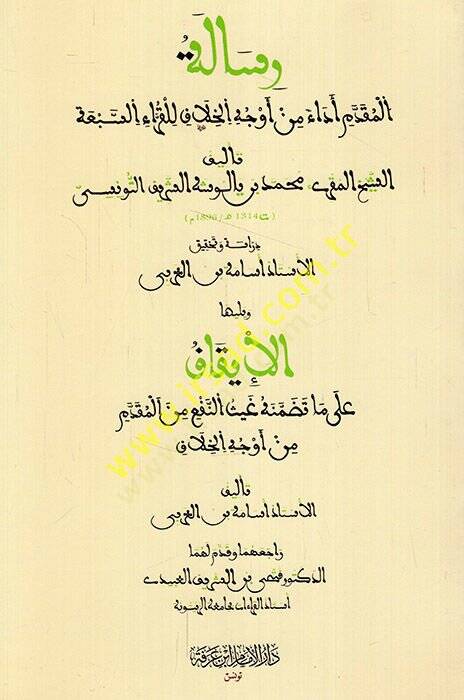 رسالة
المُقدَّم أداءً مِنْ أَوْجُهِ الخِلَافِ لِلْقُرَّاءِ السَّبْعَة
تأليف
الشيخ المقرئ محمد بن يالوشة الشريف التونسيّ
(ت 1314 هـ/1896م)
دراسة وتحقيق
الأستاذ أسامة بن العربي
ويليها
الإيقاف
عَلَى مَا تَضَمَّنَهُ غَيْثُ النَّفْعِ مِنَ المُقَدَّمِ
مِنْ أَوْجُهِ الخِلَافِ
تأليف
الأستاذ أسامة بن العربي
راجعهما وقدم لهما
الدكتور فتحي بن الشريف العبيدي
أستاذ القراءات بجامعة الزيتونة
دار الإمام ابن عرفة
تونس